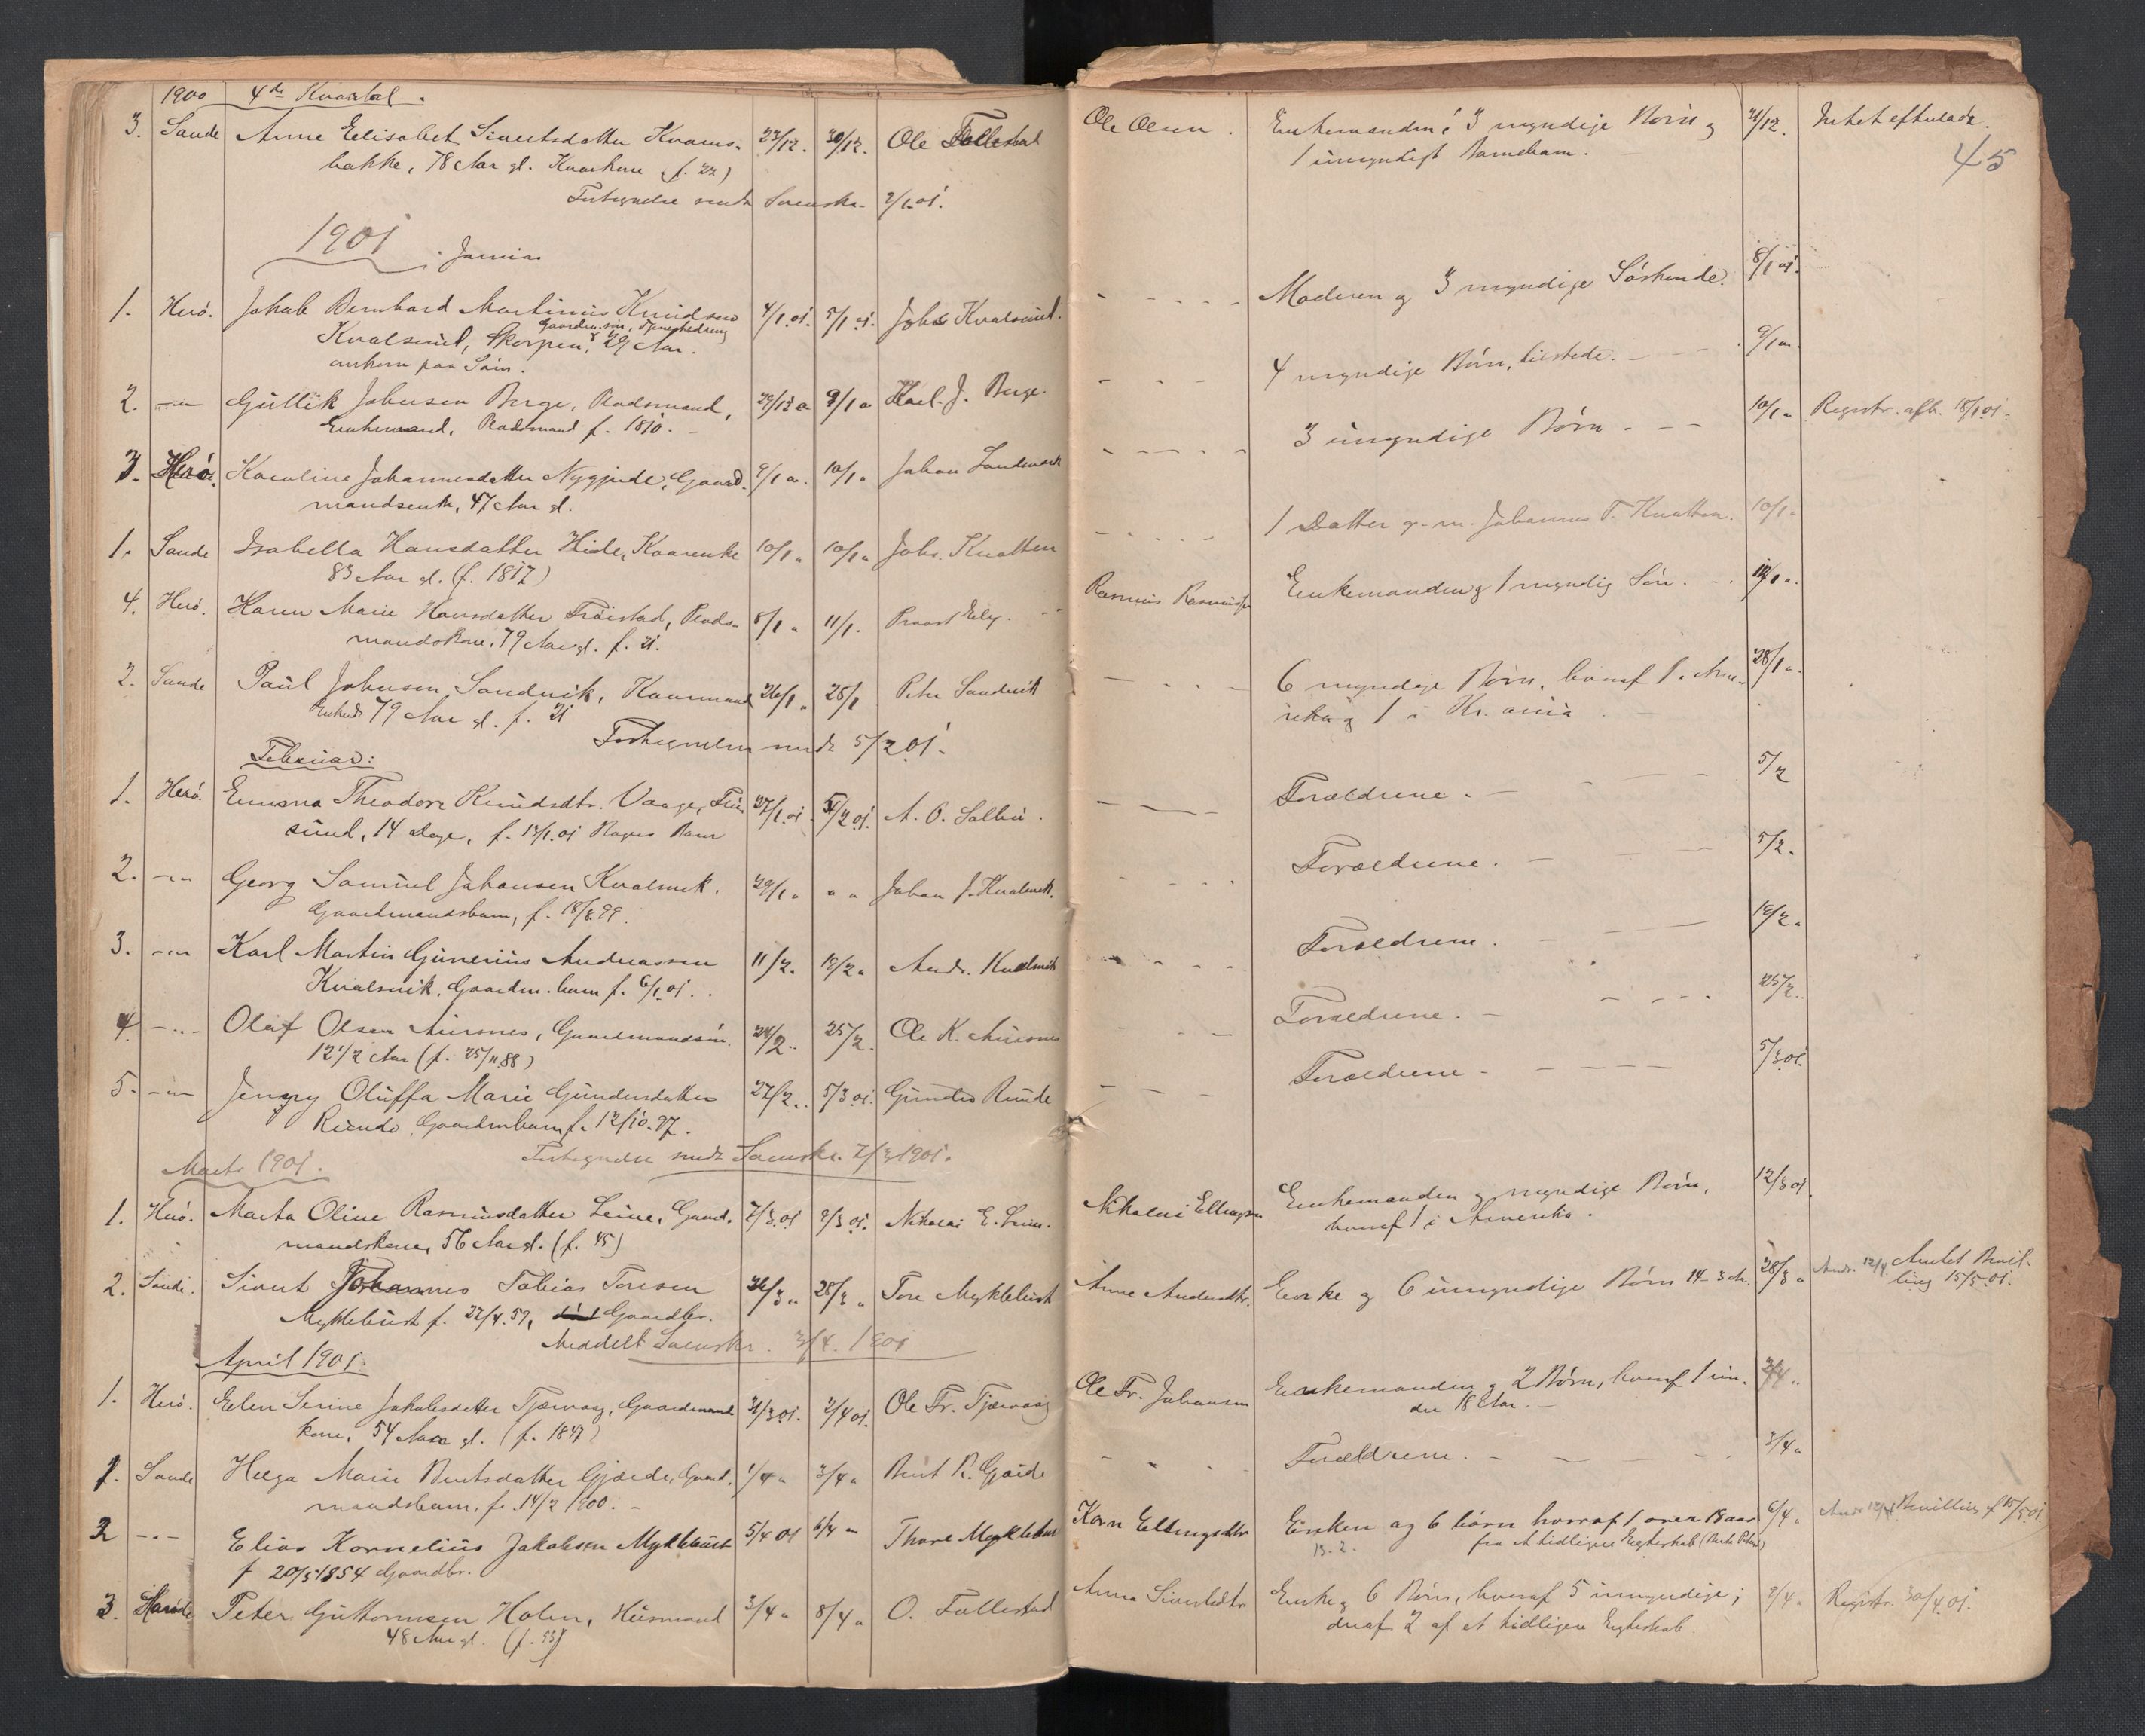 1900 4de Kvartal.
3. Sande Anne Elisabet Sivertsdatter Kvams- 23/12. 30/12. Ole Follestad Ole Olsen. Enkemanden, 3 myndige Børn og 31/12. Intet efterladt.
bakke, 78 Aar gl. Kaarkone (f. 22) 1 umyndigt Barnebarn. 45
Fortegnelse sendt Sorenskr. 2/1.01.
1901. Januar
1. Herø. Jakob Bernhard Martinus Knudsen 4/1.01. 5/1 01. Johs Kvalsund. Moderen og 3 myndige Søskende. 8/1 01.
Kvalsund, Skorpen, Gaardm.søn, Tjenestedreng 29 Aar.
omkom paa Søen.
2. -"- Guttik Johnsen Berge, Baadsmand, 29/12 9/1 " Karl J. Berge. 4 myndige Børn, tilstede. 9/1 "
Enkemand, Baadsmand f. 1810.
3. Herø. Karoline Johannesdatter Nygjerde, Gaard- 9/1 " 10/1 " Johan Landmark 3 umyndige Børn. 10/1 " Registr. afh. 18/1 01.
mandsenke, 47 Aar gl.
1. Sande Isabella Hansdatter Hide, Kaarenke 10/1 " 10/1 " Johs. Knatten 1 Datter g. m. Johannes T. Knatten. 10/1 "
83 Aar gl. (f. 1817)
4. Herø. Karen Marie Hansdatter Frøistad, Baads- 8/1 " 11/1. Provst Eeg. Rasmus Rasmussen Enkemanden og 1 myndig Søn. 12/1 "
mandskone, 79 Aar gl. f. 21.
2. Sande Paul Johnsen Sandvik, Kaarmand 26/1 " 28/1 Peter Sandvik 6 myndige Børn, hvoraf 1 i Ame- 28/1 "
Enkem. 79 Aar gl. f. 21 rika og 1 i Kr.ania
Fortegnelse sendt 5/2 01.
Februar:
1. Herø. Emma Theodore Knudsdtr. Vaage, Frø- 27/1.01. 5/2 01. A. O. Solbu. Forældrene. 5/2
sund, 14 Dage, f. 13/1.01 Barn
2. -"- Georg Samuel Johansen Kvalsvik. 29/1 " " " Johan J. Kvalsvik. Forældrene. 5/2.
Gaardmandsbarn, f. 18/8.99.
3. -"- Karl Martin Gunerius Andreassen 11/2. 19/2 " Andr. Kvalsvik Forældrene. 19/2 "
Kvalsvik, Gaardm. barn f. 6/1.01.
4. -"- Olaf Olsen Aurvnes, Gaardmandssøn. 24/2. 25/2. Ole K. Aurvnes Forældrene. 25/2.
12 1/2 Aar (f. 25/11.88)
5. -"- Jenny Oluffa Marie Gundersdatter 27/2. 5/3 01. Gunder Runde Forældrene. 5/3.01.
Runde, Gaardm.barn f. 12/10.97.
Fortegnelse sendt Sorenskr. 7/3 1901.
Marts 1901.
1. Herø. Marta Oline Rasmusdatter Leine, Gaard- 7/3.01 9/3 01. Nikolai E. Leine. Nikolai Ellingsen Enkemanden og myndige Børn, 12/3 01.
mandskone, 56 Aar gl. (f. 45) hvoraf 1 i Amerika.
2. Sande. Sivert Johannes Tobias Toresen 26/3 " 28/3 " Tore Myklebust Anne Andersdtr. Enke og 6 umyndige Børn 14-3 A. 28/3 " Ands. 12/4 Amtet Bevil-
Myklebust f. 27/4.57, Gaardbr. ling 15/5.01.
Meddelt Sorenskr. 3/4. 1901
April 1901.
1. Herø. Elen Serine Jakobsdatter Tjærvaag, Gaardmands 31/3 01. 2/4 01. Ole Fr. Tjærvaag Ole Fr. Johansen Enkemanden og 2 Børn, hvoraf 1 un- 2/4 "
kone, 54 Aar gl. (f. 1847) der 18 Aar.
1. Sande Helga Marie Berntsdatter Gjærde, Gaard- 1/4 " 3/4 " Bernt R. Gjærde Forældrene. 3/4 "
mandsbarn, f. 14/2 1900.
2 -"- Elias Kornelius Jakobsen Myklebust 5/4 01 6/4 " Thore Myklebust Karen Ellingsdtr Enken og 6 børn hvoraf 1 over 18 aar 6/4 " Ands. 12/4 Bevilling af 15/5 01
f 20/5 1854 Gaardbr. 13-2. fra et tidligere Egteskab
3. Sande Peter Guttormsen Holen, Husmand 3/4 " 8/4 " O. Follestad Anna Sivertsdtr Enke og 6 Børn, hvoraf 5 umyndige; 9/4 " Registr. 30/4.01.
48 Aar gl. (f. 53) deraf 2 af et tidligere Egteskab.